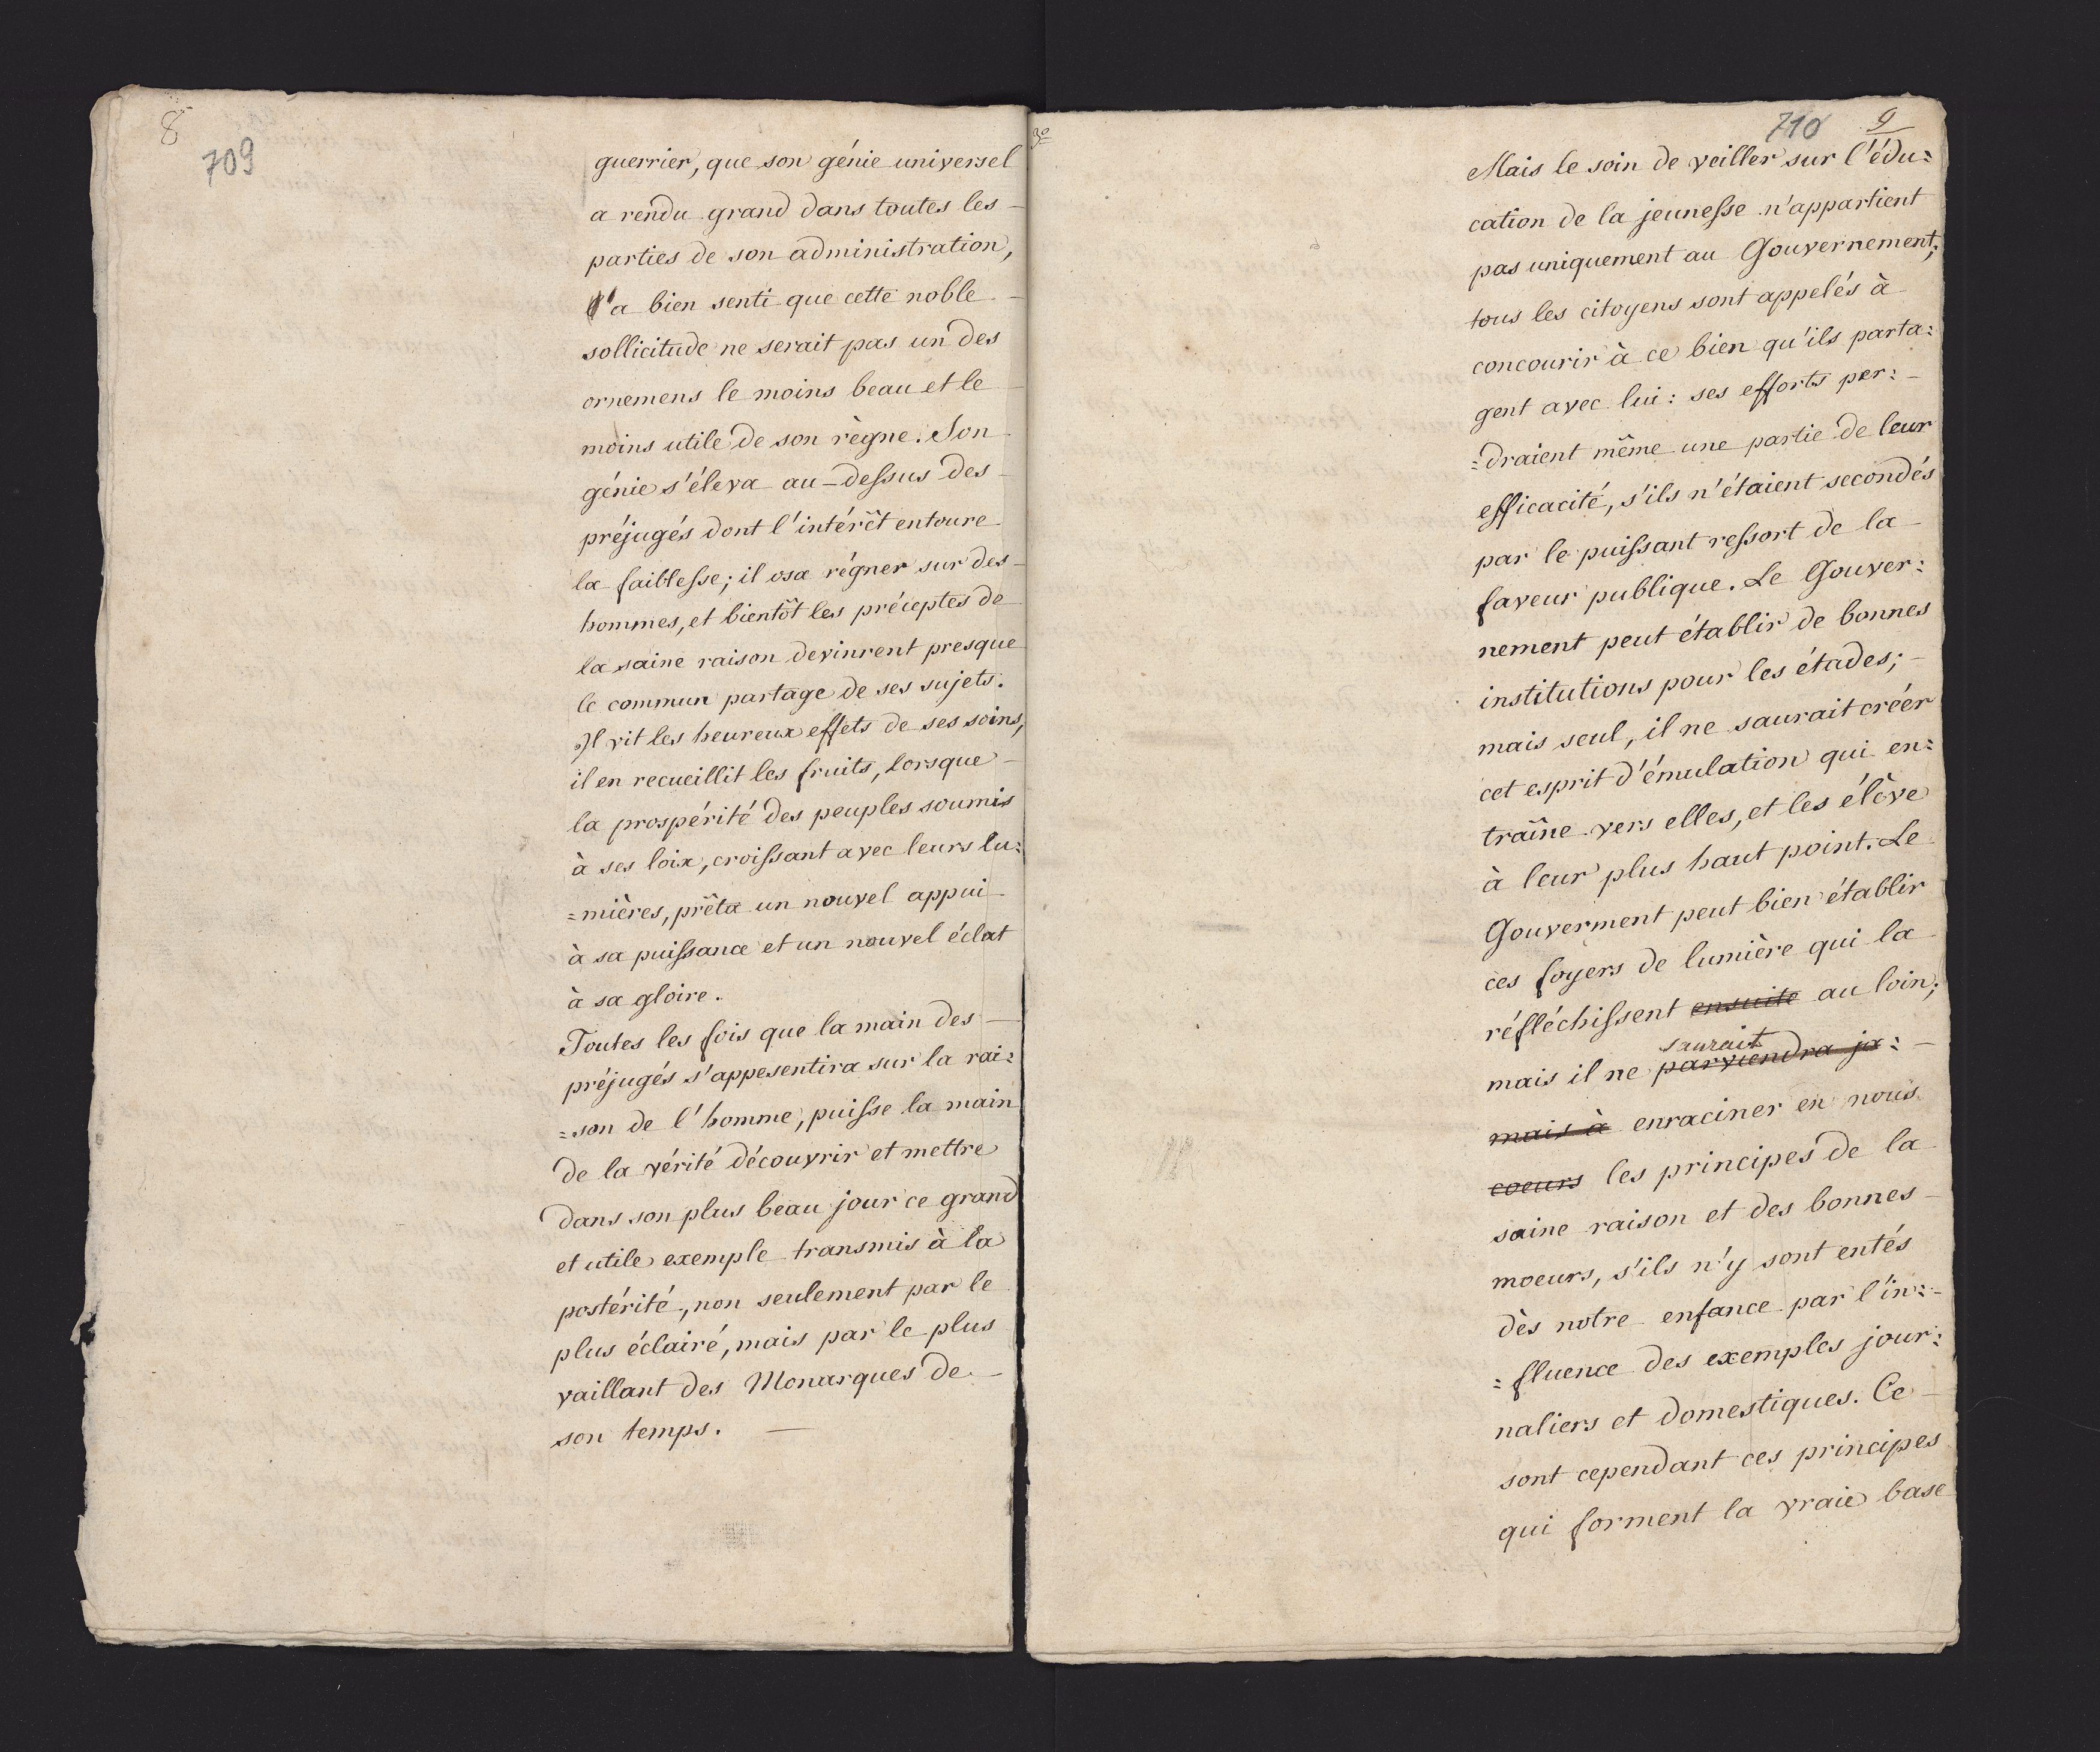 8
709
guerrier, que son génie universel
a rendu grand dans toutes les -
parties de son administration,
a bien senti que cette noble -
sollicitude ne serait pas un des
ornemens le moins beau et le -
moins utile de son règne. Son
génie s'éleva au-dessus des -
préjugés dont l'intérêt entoure
la faiblesse; il osa régner sur des -
hommes, et bientôt les préceptes de
la saine raison devinrent presque
le commun partage de ses sujets.
Il vit les heureux effets de ses soins,
il en recueillit les fruits, lorsque -
la prospérité des peuples soumis
à ses loix, croissant avec leurs lu=
=mières, prêta un nouvel appui -
à sa puissance et un nouvel éclat
à sa gloire.
Toutes les fois que la main des -
préjugés s'appesentira sur la rai=
=son de l'homme, puisse la main
de la vérité découvrir et mettre
dans son plus beau jour ce grand
et utile exemple transmis à la
postérité, non seulement par le
plus éclairé, mais par le plus
vaillant des Monarques de -
son temps. -
710 9
Mais le soin de veiller sur l'édu=
cation de la jeunesse n'appartient
pas uniquement au Gouvernement;
tous les citoyens sont appelés à
concourir à ce bien qu'ils parta=
gent avec lui: ses efforts per= -
=draient même une partie de leur
efficacité, s'ils n'étaient secondés
par le puissant ressort de la -
faveur publique. Le Gouver=
nement peut établir de bonnes
institutions pour les étades; -
mais seul, il ne saurait créér
cet esprit d'émulation qui en=
traîne vers elles, et les élève
à leur plus haut point. Le
Gouverment peut bien établir
ces foyers de lumière qui la
réfléchissent ensuite au loin;
saurait
mais il ne parviendra ja= -
mais à enraciner en nous
coeurs les principes de la
saine raison et des bonnes -
moeurs, s'ils n'y sont entés
dès notre enfance par l'in= -
=fluence des exemples jour=
naliers et domestiques. Ce -
sont cependant ces principes
qui forment la vraie base